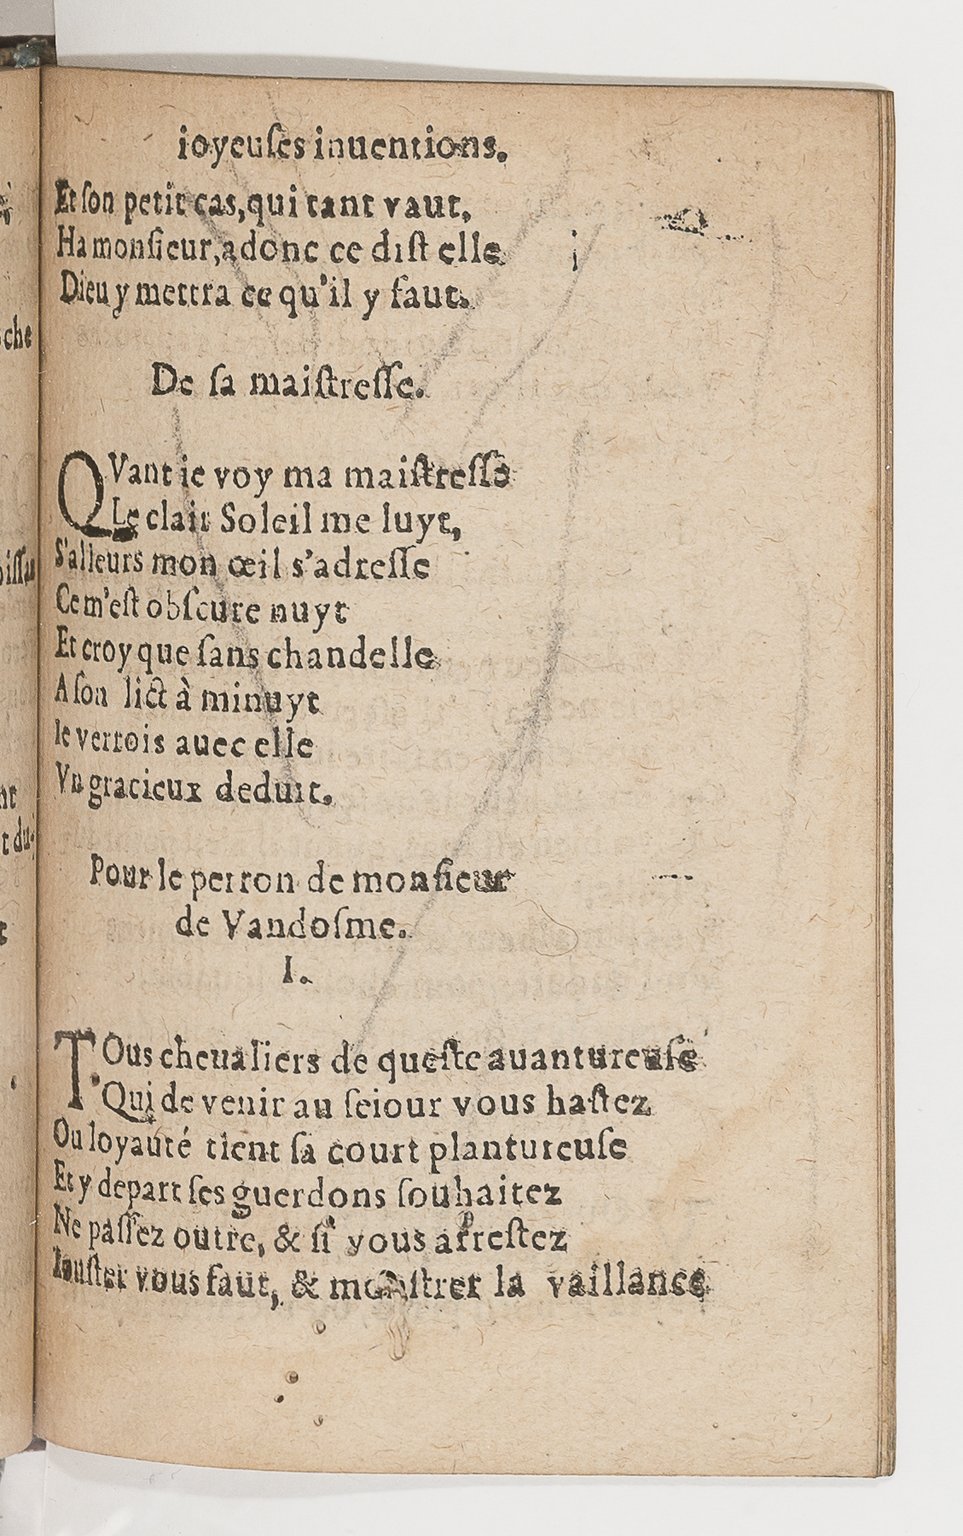 ioyeuſes inuentions.
Et ſon petit cas, qui tant vaut,
Ha monſieur, adonc ce diſt elle
Dieu y mettra ce qu'il y faut.
De ſa maiſtreſſe.
QVant ie voy ma maiſtreſſe
Le clair Soleil me luyt,
S'alleurs mon œil s'adreſſe
Ce m'eſt obſcure nuyt
Et croy que ſans chandelle
A ſon lict à minuyt
Ie verrois auec elle
Vn gracieux deduit.
Pour le perron de monſieur
de Vandoſme.
I.
TOus cheualiers de queſte auantureuſe
Qui de venir au ſeiour vous haſtez
Ou loyauté tient ſa court plantureuſe
Et y depart ſes guerdons ſouhaitez
Ne paſſez outre, & ſi vous arreſtez
Iouſter vous faut, & monſtrer la vaillance